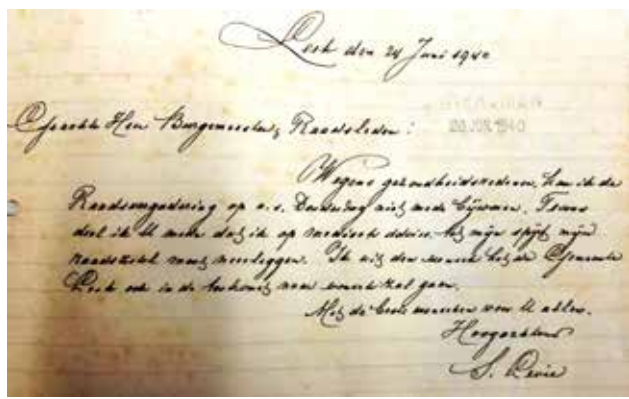 Loth den 24 Juni 1940
Geachte Heer Burgemeester & Raadsleden:
Wegens gezondheidsredenen, kan ik de
Raadsvergadering op a.s. Donderdag niet mede bijwonen. Tevens
deel ik U mede dat ik op medisch advies tot mijn spijt mijn
raadszetel moet neerleggen. Ik uit den wensch dat de Gemeente
ook in de toekomst naar wensch zal gaan.
Met de beste wenschen voor U allen.
Hoogachtend
S. Levie